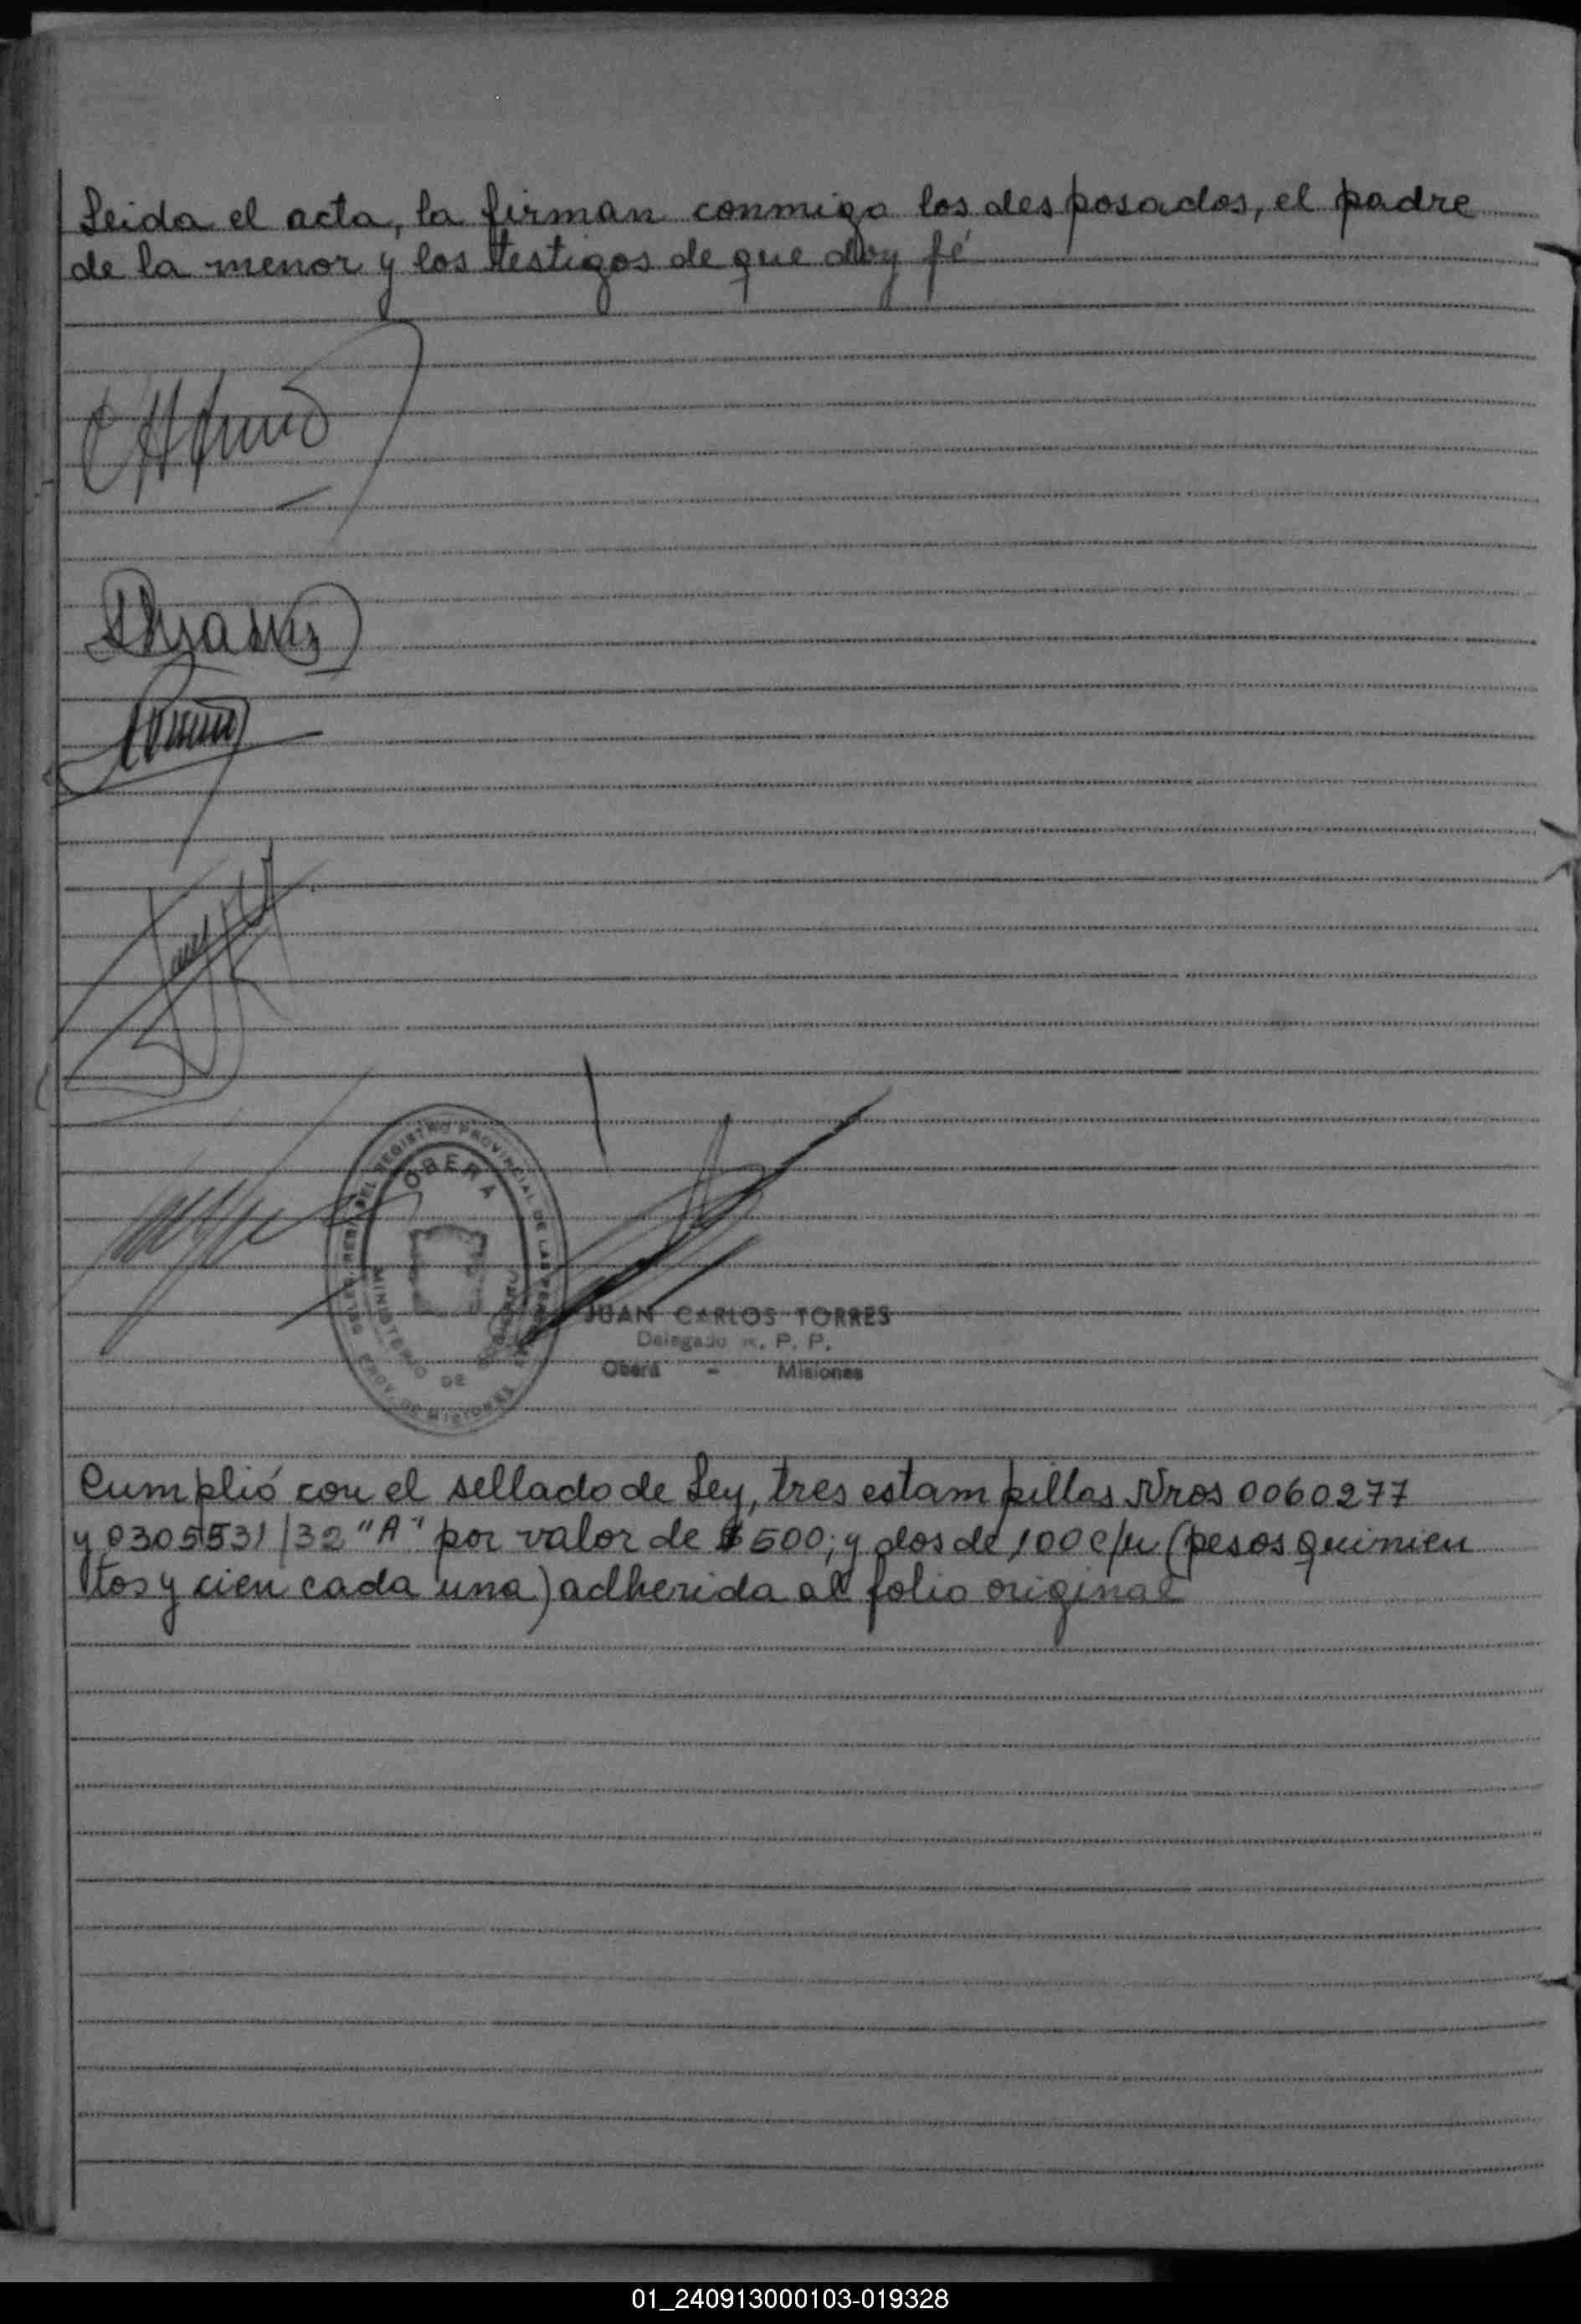 Leida el acta, la firman conmigo los desposados, el padre
de la menor y los testigos de que doy fé
OBERA
MINISTERIO DE
PROV. DE MISIONES
JUAN CARLOS TORRES
Delegado R. P. P.
Oberá - Misiones
Cumplió con el sellado de Ley, tres estampillas Nros 0060277
y 0305531/32 "A" por valor de $500; y dos de 100 c/u (pesos quinien
tos y cien cada una) adherida al folio original
01_240913000103-019328